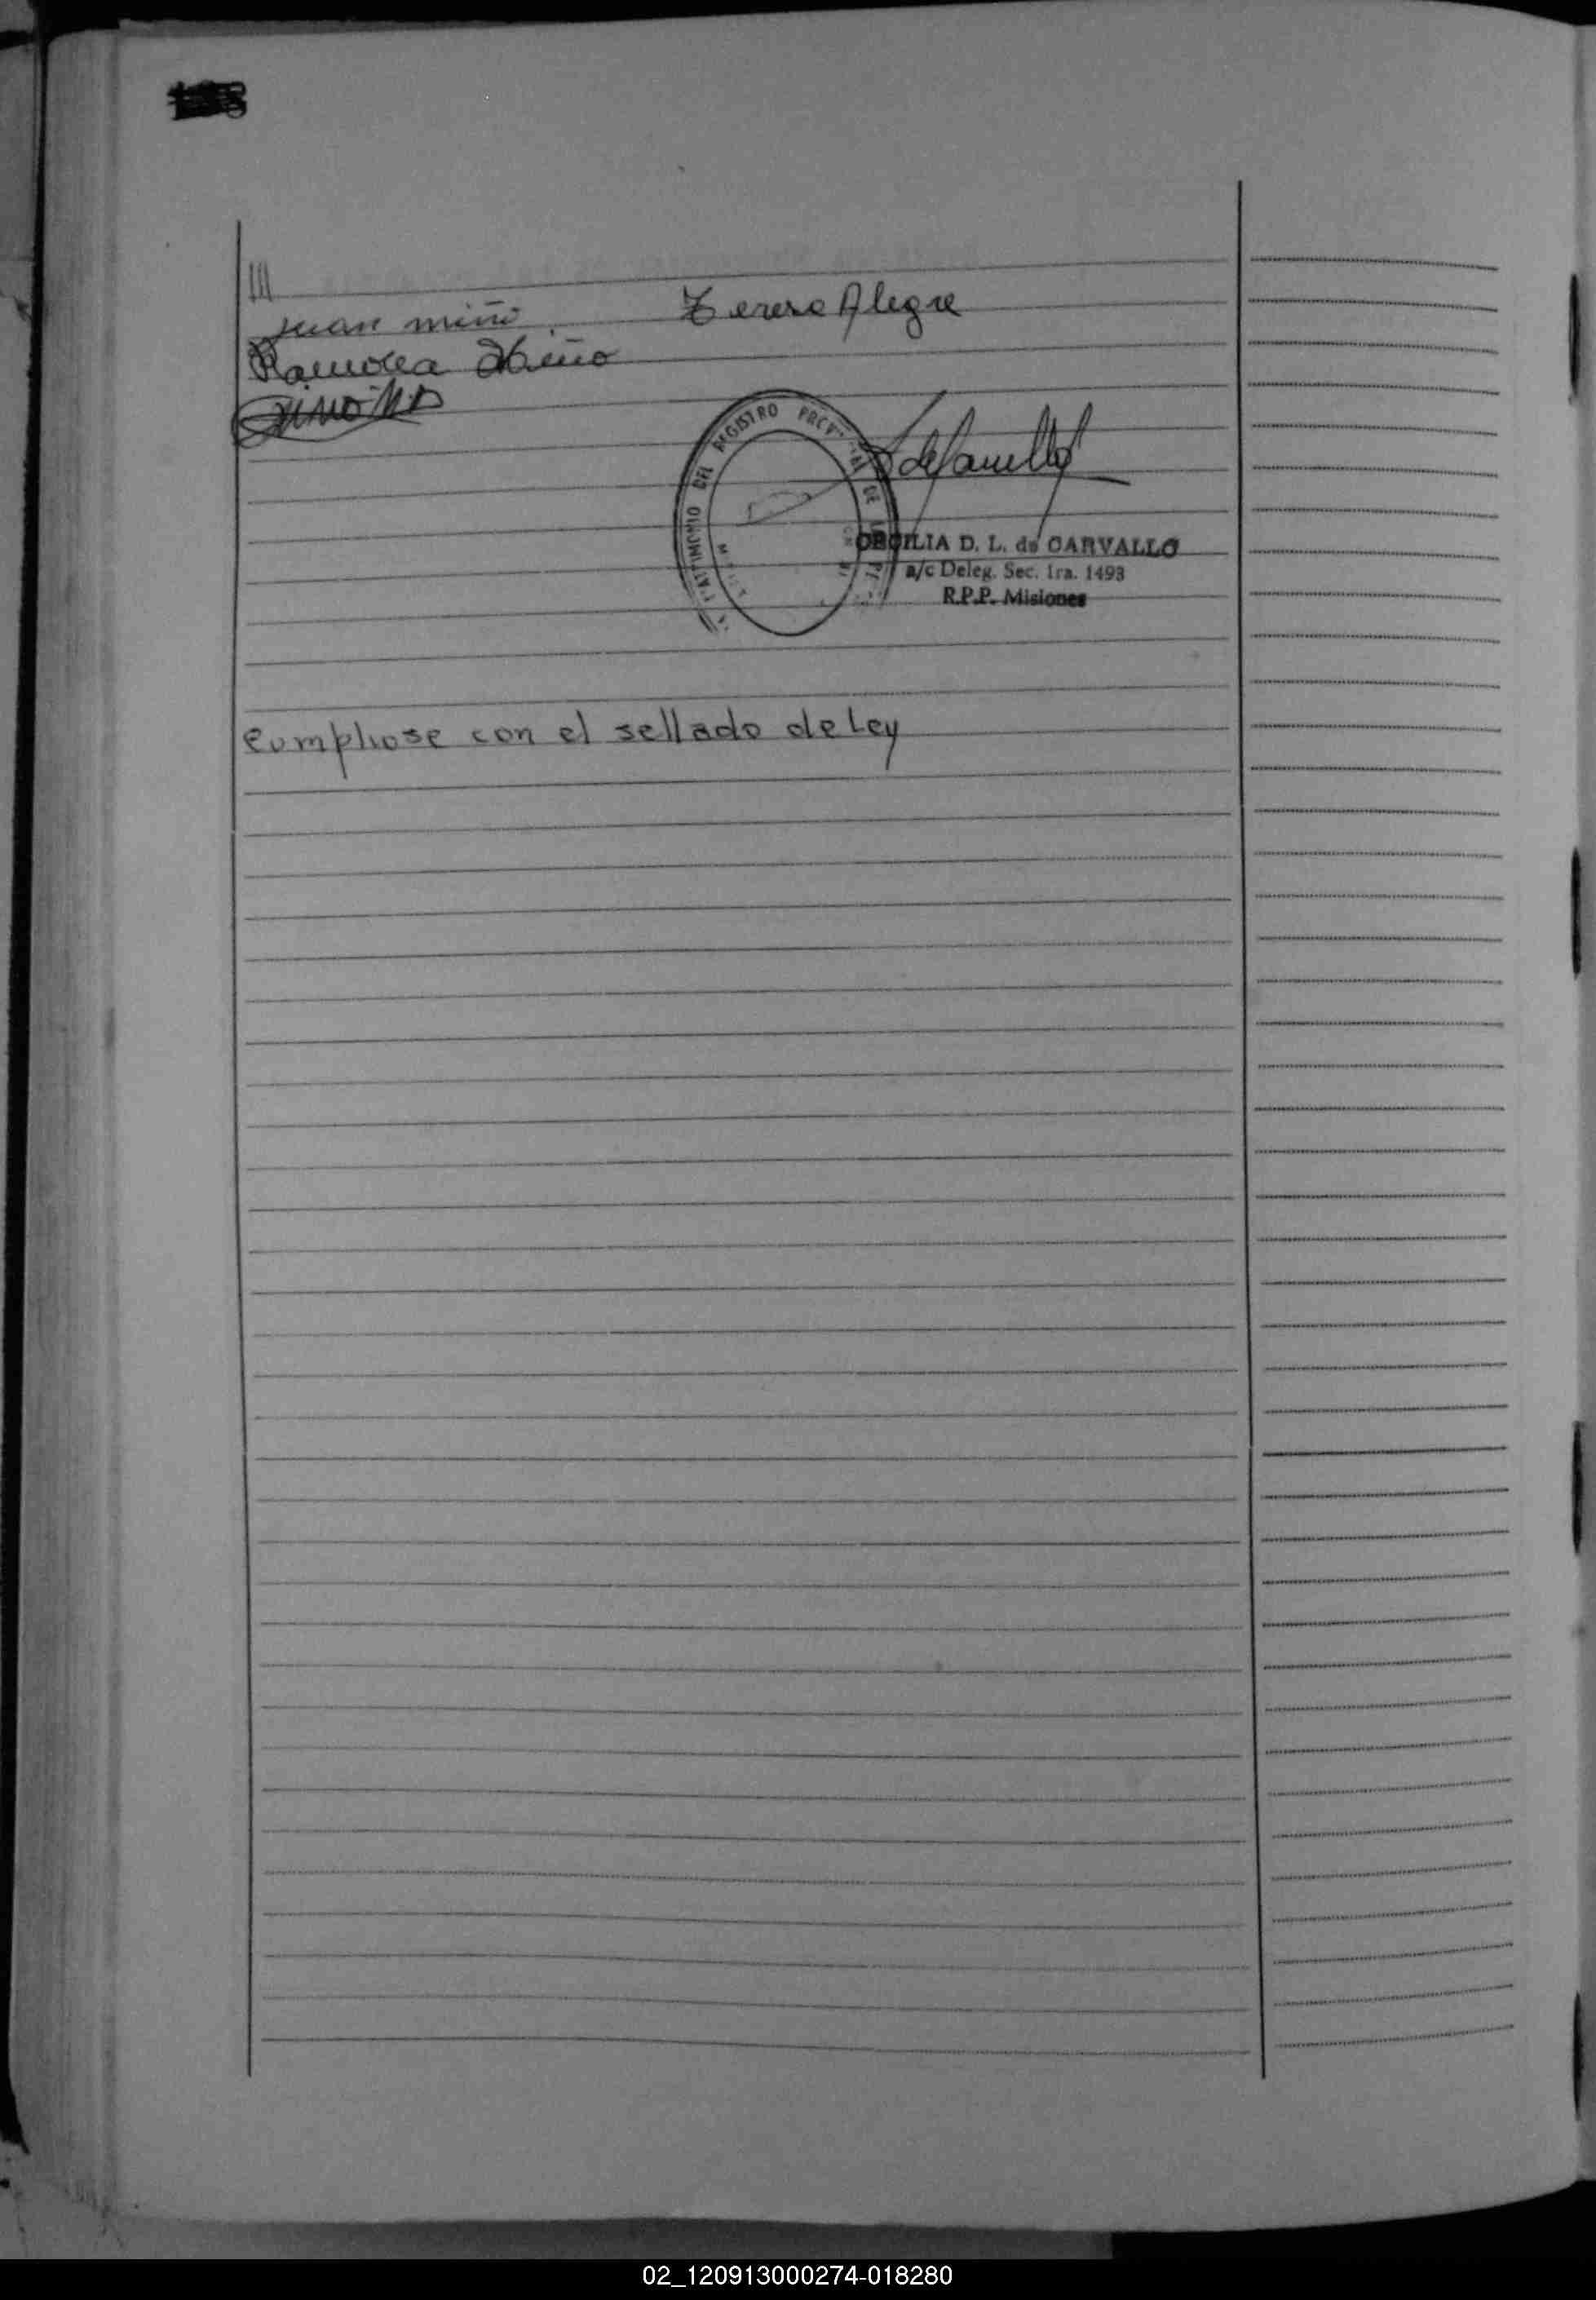 ///
Juan miño Teresa Alegre
Ramona Miño
PATRIMONIO DEL REGISTRO DE
CECILIA D. L. de CARVALLO
a/c Deleg. Sec. 1ra. 1493
R.P.P. Misiones
Cumpliose con el sellado de Ley
02_120913000274-018280